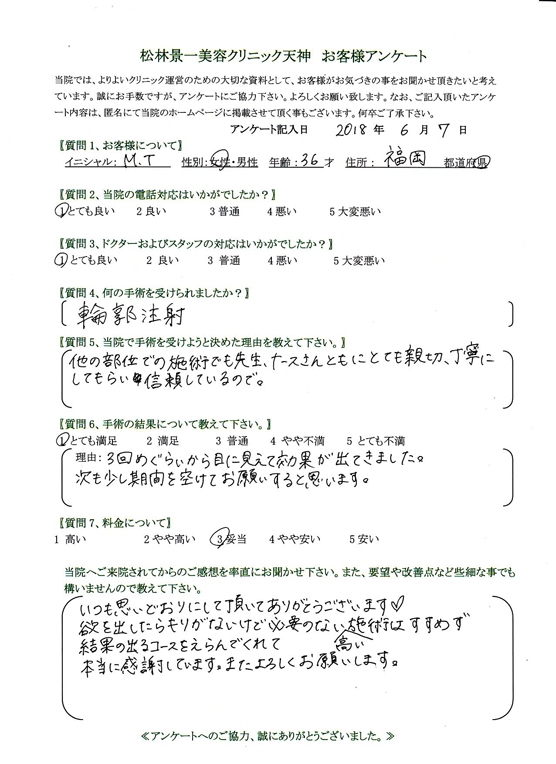 松林景一美容クリニック天神　お客様アンケート
当院では、よりよいクリニック運営のための大切な資料として、お客様がお気づきの事をお聞かせ頂きたいと考え
ています。誠にお手数ですが、アンケートにご協力下さい。よろしくお願い致します。なお、ご記入頂いたアンケ
ート内容は、匿名にて当院のホームページに掲載させて頂く事もございます。何卒ご了承下さい。
アンケート記入日　2018 年　6 月　7 日
〖質問 1、お客様について〗
イニシャル: M.T　性別: 女性・男性　年齢: 36 才　住所: 福岡　都道府県
〖質問 2、当院の電話対応はいかがでしたか？〗
1 とても良い　2 良い　3 普通　4 悪い　5 大変悪い
〖質問 3、ドクターおよびスタッフの対応はいかがでしたか？〗
1 とても良い　2 良い　3 普通　4 悪い　5 大変悪い
〖質問 4、何の手術を受けられましたか？〗
輪郭注射
〖質問 5、当院で手術を受けようと決めた理由を教えて下さい。〗
他の部位での施術でも先生、ナースさんともにとても親切、丁寧に
してもらい信頼しているので。
〖質問 6、手術の結果について教えて下さい。〗
1 とても満足　2 満足　3 普通　4 やや不満　5 とても不満
理由: 3回めぐらいから目に見えて効果が出てきました。
次も少し期間を空けてお願いすると思います。
〖質問 7、料金について〗
1 高い　2 やや高い　3 妥当　4 やや安い　5 安い
当院へご来院されてからのご感想を率直にお聞かせ下さい。また、要望や改善点など些細な事でも
構いませんので教えて下さい。
いつも思いどおりにして頂いてありがとうございます♡
欲を出したらキリがないけど必要のない高い施術はすすめず
結果の出るコースをえらんでくれて
本当に感謝しています。またよろしくお願いします。
≪アンケートへのご協力、誠にありがとうございました。≫